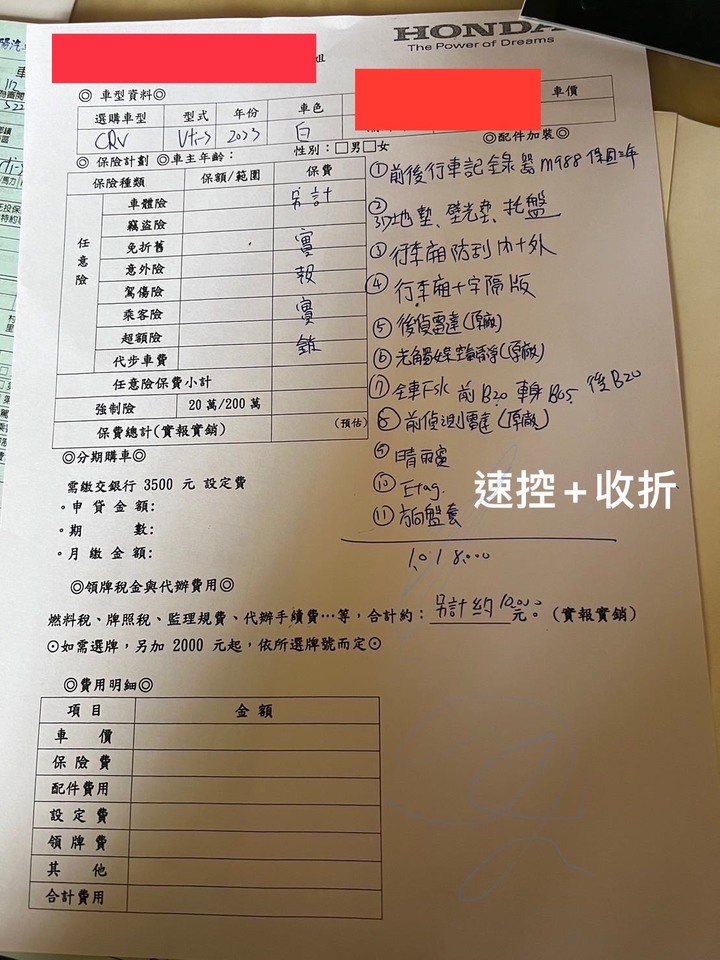 HONDA
The Power of Dreams
姐
◎ 車型資料◎
車價
選購車型 型式 年份 車色
CRV Vti-S 2023 白
性別：□男□女
◎配件加裝◎
◎ 保險計劃 ◎車主年齡：
保險種類 保額/範圍 保費
任意險
車體險 另計
竊盜險
免折舊 實
意外險 報
駕傷險
乘客險 實
超額險 銷
代步車費
任意險保費小計
強制險 20 萬/200 萬
保費總計(實報實銷) (預估)
①前後行車記錄器 m988 保固三年
②3D地墊、壁光墊、托盤
③行李廂防刮內+外
④行李廂十字隔版
⑤後偵雷達(原廠)
⑥光觸媒空氣清淨(原廠)
⑦全車Fsk 前B20 車身B05 後B20
⑧前偵測雷達(原廠)
⑨晴雨窗
⑩Etag.
⑪方向盤套
速控+收折
1,018,000
◎分期購車◎
需繳交銀行 3500 元 設定費
。申 貸 金 額:
。期 數:
。月 繳 金 額:
◎領牌稅金與代辦費用◎
燃料稅、牌照稅、監理規費、代辦手續費…等，合計約：另計約10,000元。(實報實銷)
⊙如需選牌，另加 2000 元起，依所選牌號而定⊙
◎費用明細◎
項 目 金 額
車 價
保 險 費
配件費用
設 定 費
領 牌 費
其 他
合計費用